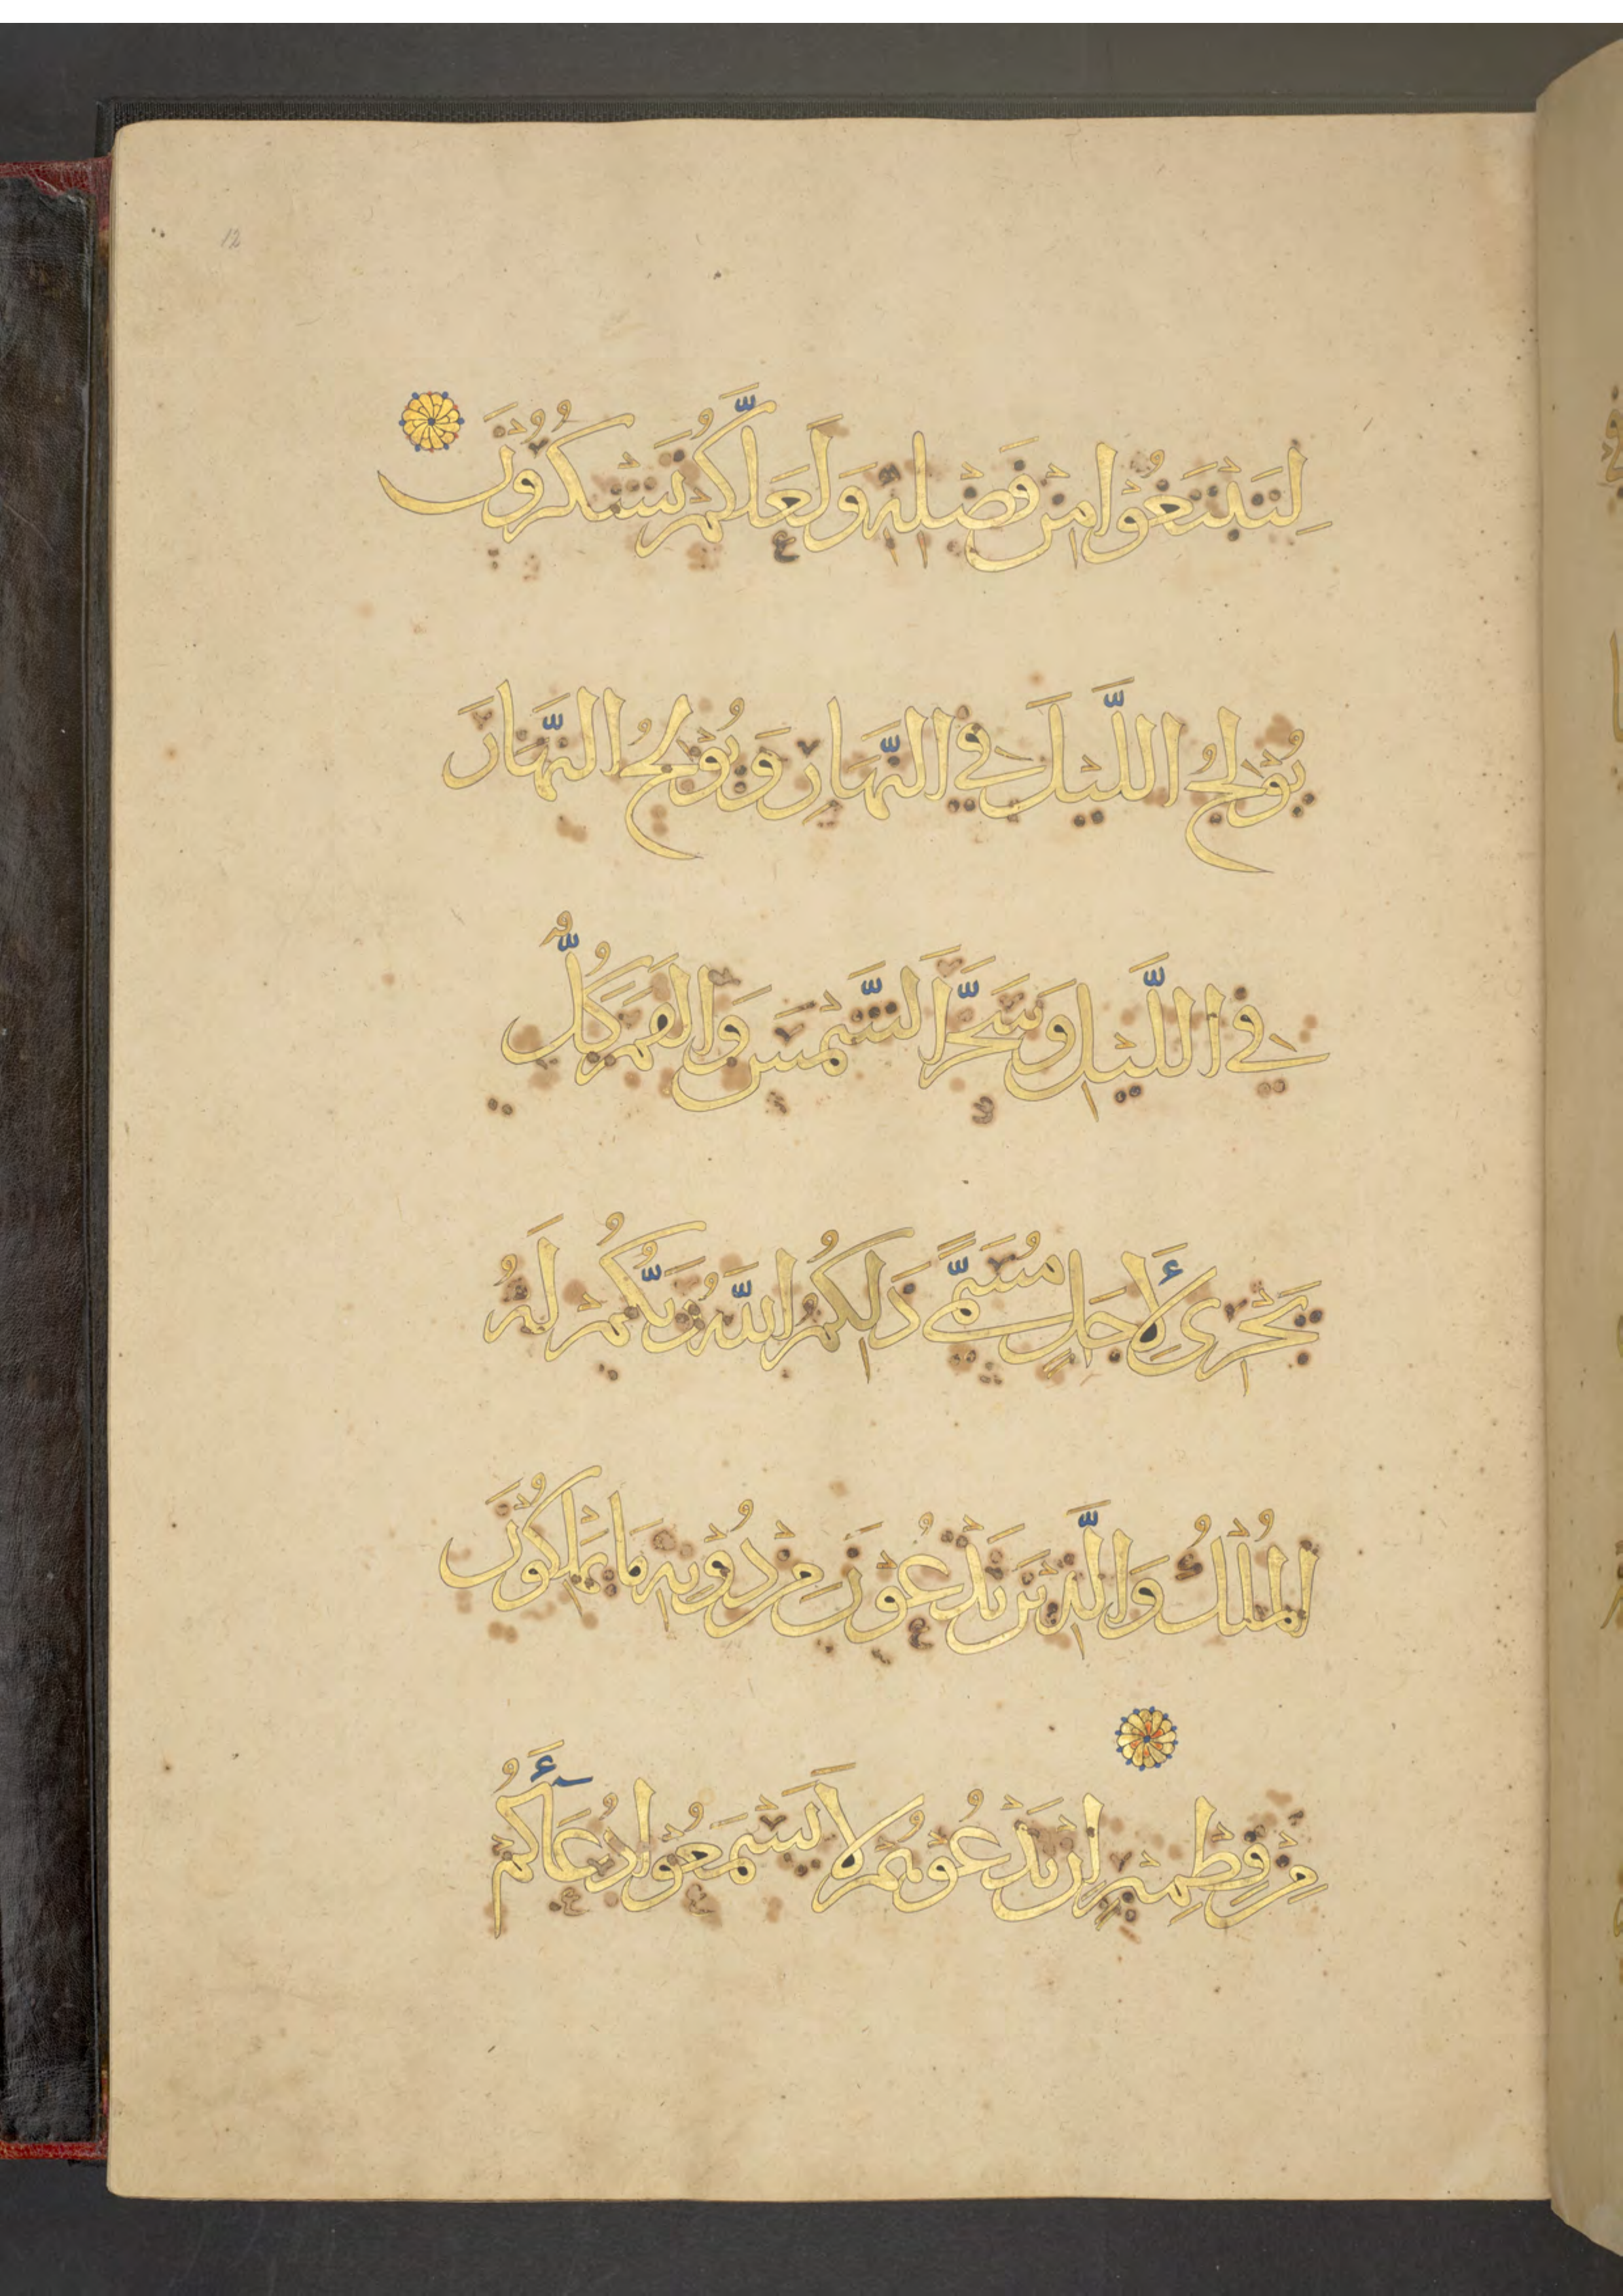 12
لِتَبْتَغُوْا مِنْ فَضْلِهٖ وَلَعَلَّكُمْ تَشْكُرُوْنَ
يُوْلِجُ اللَّيْلَ فِي النَّهَارِ وَيُوْلِجُ النَّهَارَ
فِي اللَّيْلِ وَسَخَّرَ الشَّمْسَ وَالقَمَرَ كُلٌّ
يَجْرِى لِأَجَلٍ مُسَمًّى ذَلِكُمُ اللَّهُ رَبُّكُمْ لَهُ
المُلْكُ وَالَّذِيْنَ يَدْعُوْنَ مِنْ دُوْنِهِ مَا يَمْلِكُوْنَ
مِنْ قِطْمِيْرٍ إِنْ تَدْعُوْهُمْ لاَ يَسْمَعُوْا دُعَآءَكُمْ